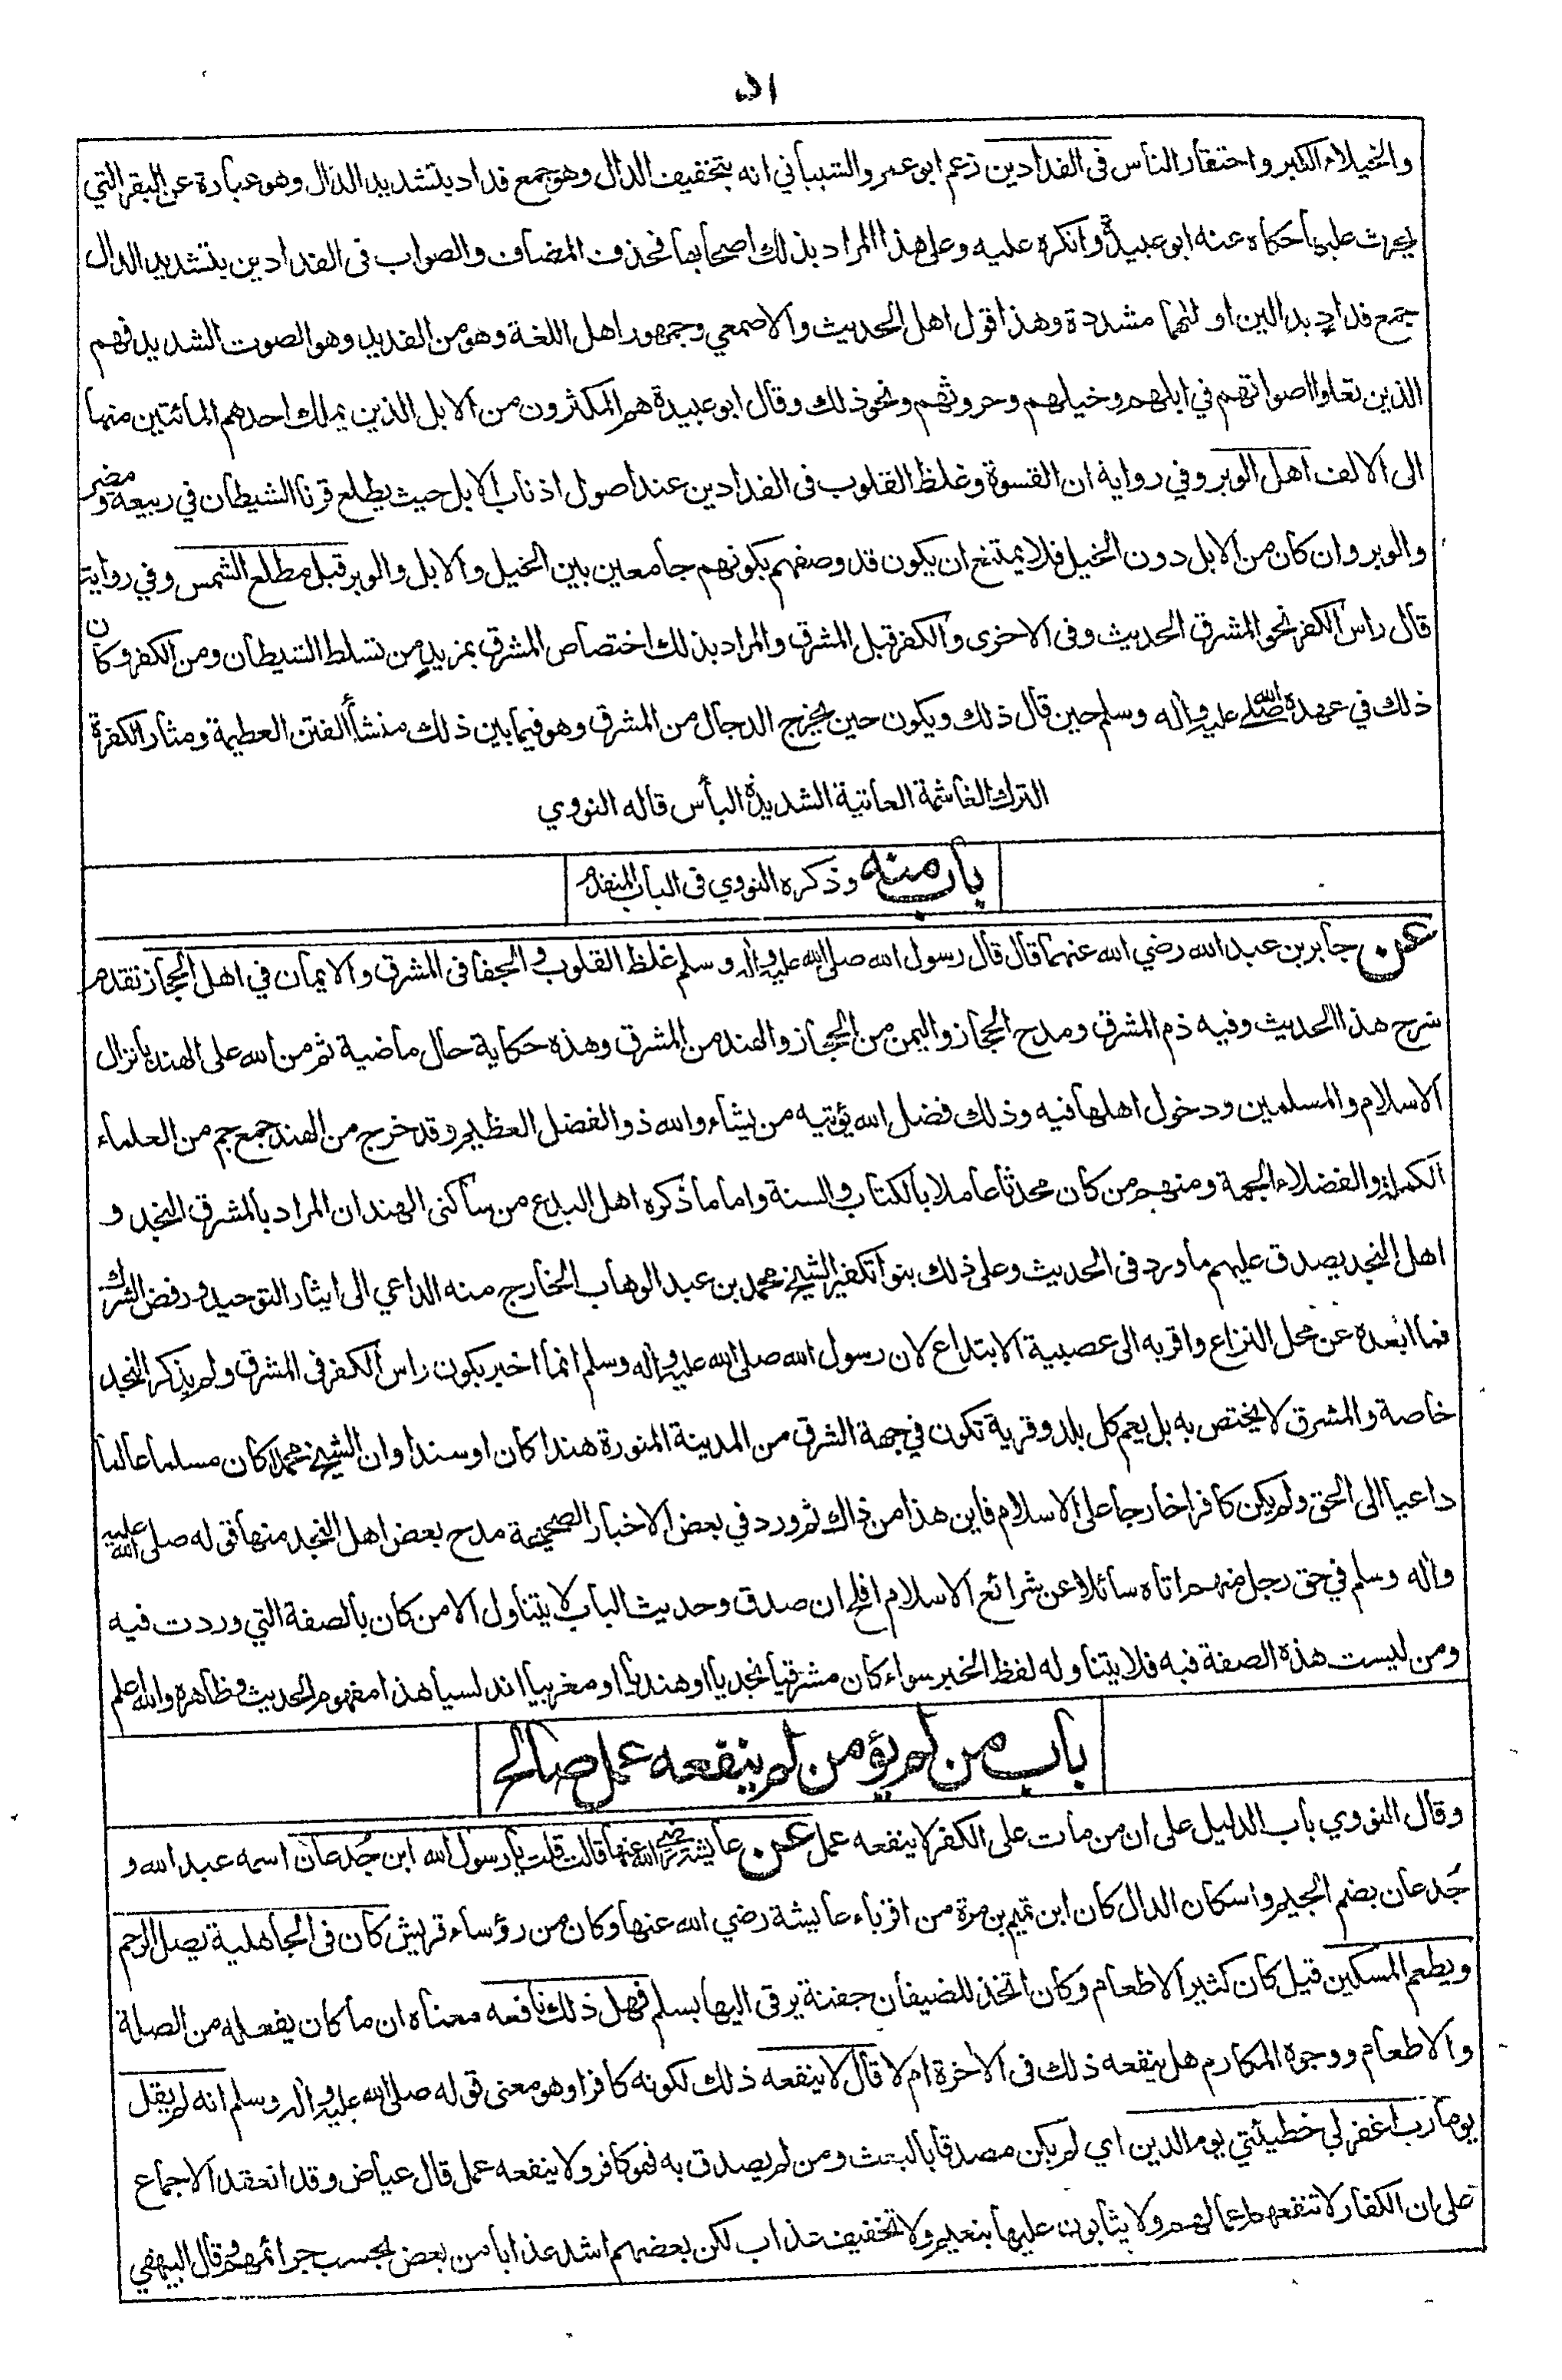 ٥١
والخيلاء الكبر واحتقار الناس فى الفدادين زعم ابو عمرو الشيباني انه بتخفيف الدال وهو جمع فداد بتشديد الدال وهو عبارة عن البقر التي
يحرث عليها حكاه عنه ابو عبيدة وانكره عليه وعلى هذا المراد بذلك اصحابها فحذف المضاف والصواب فى الفدادين بتشديد الدال
جمع فداد بدالين اولهما مشددة وهذا قول اهل الحديث والاصمعي وجمهور اهل اللغة وهو من الفديد وهو الصوت الشديد فهم
الذين تعلوا اصواتهم في ابلهم وخيلهم وحروثهم ونحو ذلك وقال ابو عبيدة هم المكثرون من الابل الذين يملك احدهم المائتين منها
الى الالف اهل الوبر وفي رواية ان القسوة وغلظ القلوب فى الفدادين عند اصول اذناب الابل حيث يطلع قرنا الشيطان في ربيعة ومضر
والوبر وان كان من الابل دون الخيل فلا يمتنع ان يكون قد وصفهم بكونهم جامعين بين الخيل والابل والوبر قبل مطلع الشمس وفي رواية
قال راس الكفر نحو المشرق الحديث وفى الاخرى والكفر قبل المشرق والمراد بذلك اختصاص المشرق بمزيد من تسلط الشيطان ومن الكفر وكان
ذلك في عهده صلى الله عليه واله وسلم حين قال ذلك ويكون حين يخرج الدجال من المشرق وهو فيما بين ذلك منشأ الفتن العظيمة ومثار الكفرة
الترك الغاشمة العاتية الشديدة البأس قاله النووي
باب منه وذكره النووي فى الباب المتقدم
عن جابر بن عبد الله رضي الله عنهما قال قال رسول الله صلى الله عليه واله وسلم غلظ القلوب والجفا فى المشرق والايمان في اهل الحجاز تقدم
شرح هذا الحديث وفيه ذم المشرق ومدح الحجاز واليمن من الحجاز والهند من المشرق وهذه حكاية حال ماضية ثم من الله على الهند بانزال
الاسلام والمسلمين ودخول اهلها فيه وذلك فضل الله يؤتيه من يشاء والله ذو الفضل العظيم وقد خرج من الهند جمع جم من العلماء
الكملة والفضلاء الجمة ومنهم من كان محدثا عاملا بالكتاب والسنة واما ما ذكره اهل البدع من ساكنى الهند ان المراد بالمشرق النجد و
اهل النجد يصدق عليهم ما ورد فى الحديث وعلى ذلك بنوا تكفير الشيخ محمد بن عبد الوهاب الخارج منه الداعي الى ايثار التوحيد ورفض الشرك
فما ابعده عن محل النزاع واقربه الى عصبية الابتداع لان رسول الله صلى الله عليه واله وسلم انما اخبر بكون راس الكفر فى المشرق ولم يذكر النجد
خاصة والمشرق لا يختص به بل يعم كل بلد وقرية تكون في جهة الشرق من المدينة المنورة هندا كان او سندا وان الشيخ محمدا كان مسلما عالما
داعيا الى الحق ولم يكن كافرا خارجا على الاسلام فاين هذا من ذاك ثم ورد في بعض الاخبار الصحيحة مدح بعض اهل النجد منها قوله صلى الله عليه
واله وسلم في حق رجل منهم اتاه سائلا عن شرائع الاسلام افلح ان صدق وحديث الباب لا يتناول الا من كان بالصفة التي وردت فيه
ومن ليست هذه الصفة فيه فلا يتناوله لفظ الخبر سواء كان مشرقيا نجديا او هنديا او مغربيا اندلسيا هذا مفهوم الحديث وظاهره والله اعلم
باب من لم يؤمن لم ينفعه عمل صالح
وقال النووي باب الدليل على ان من مات على الكفر لا ينفعه عمل عن عايشة رضي الله عنها قالت قلت يا رسول الله ابن جُدعان اسمه عبد الله و
جُدعان بضم الجيم واسكان الدال كان ابن تميم بن مرة من اقرباء عايشة رضي الله عنها وكان من رؤساء قريش كان فى الجاهلية يصل الرحم
ويطعم المسكين قيل كان كثير الاطعام وكان اتخذ للضيفان جفنة يرقى اليها بسلم فهل ذلك نافعه معناه ان ما كان يفعله من الصلة
والاطعام ووجوه المكارم هل ينفعه ذلك فى الاخرة ام لا قال لا ينفعه ذلك لكونه كافرا وهو معنى قوله صلى الله عليه واله وسلم انه لم يقل
يوما رب اغفر لي خطيئتي يوم الدين اي لم يكن مصدقا بالبعث ومن لم يصدق به فهو كافر ولا ينفعه عمل قال عياض وقد انعقد الاجماع
على ان الكفار لا تنفعهم اعمالهم ولا يثابون عليها بنعيم ولا تخفيف عذاب لكن بعضهم اشد عذابا من بعض بحسب جرائمهم وقال البيهقي